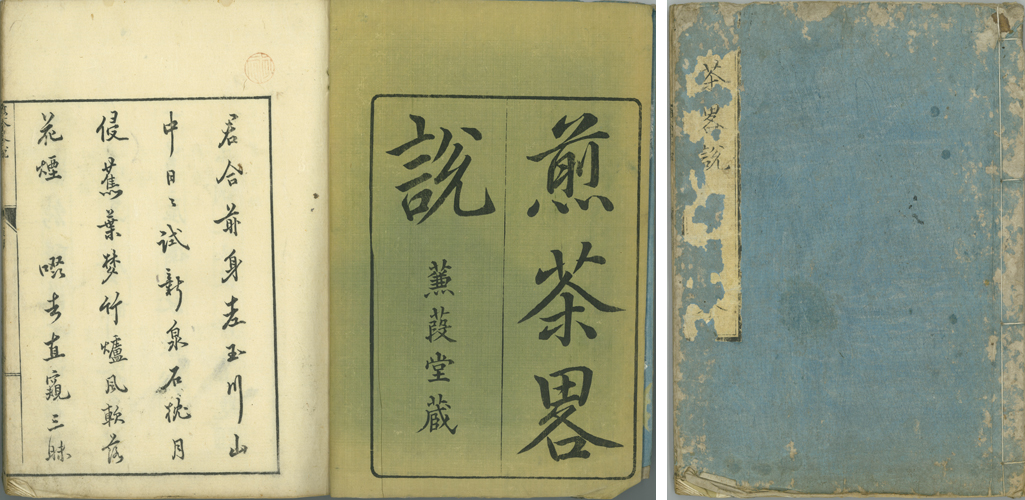 煎茶畧
說
蒹葭堂蔵
君合前身老玉川山
中日〻試新泉石枕月
侵蕉葉夢竹爐風軟落
花煙 啜去直窺三昧
茶畧說